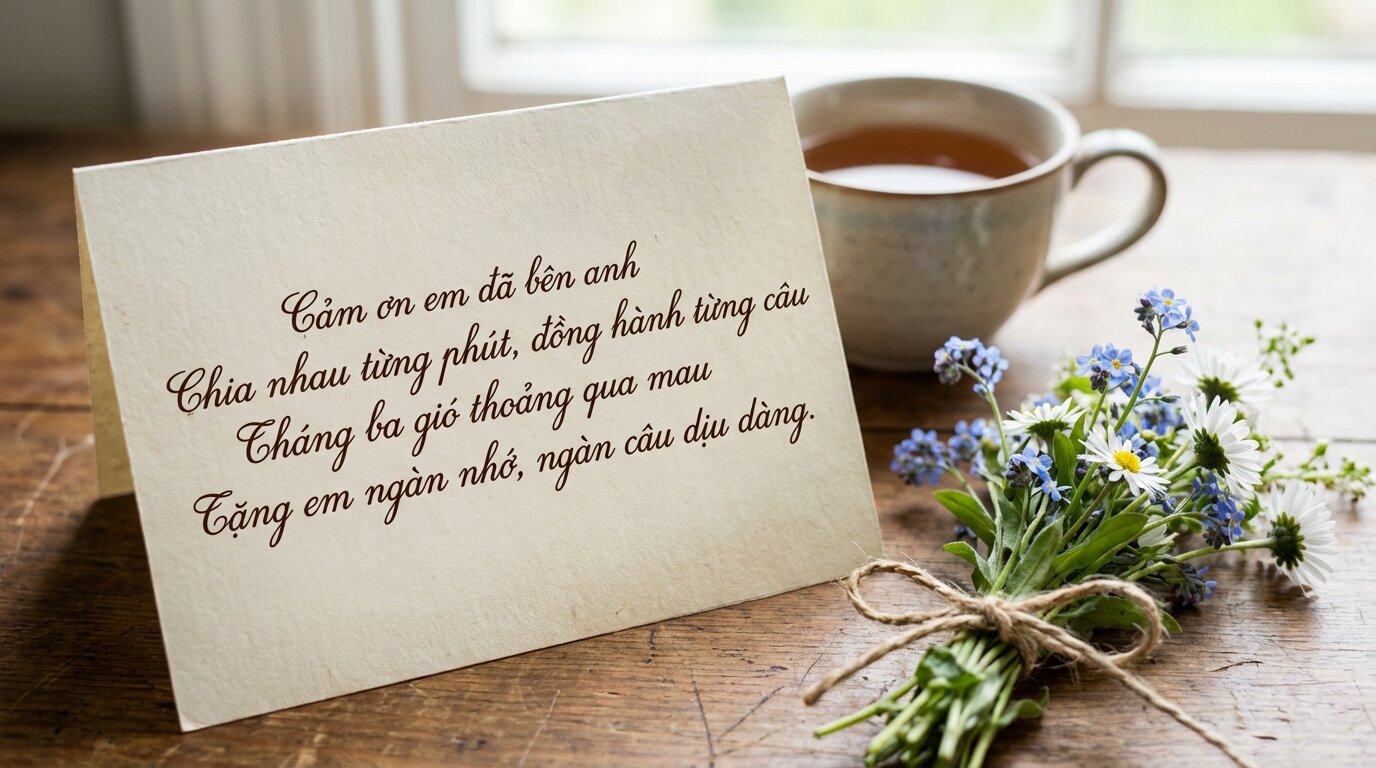 Cảm ơn em đã bên anh
Chia nhau từng phút, đồng hành từng câu
Tháng ba gió thoảng qua mau
Tặng em ngàn nhớ, ngàn câu dịu dàng.